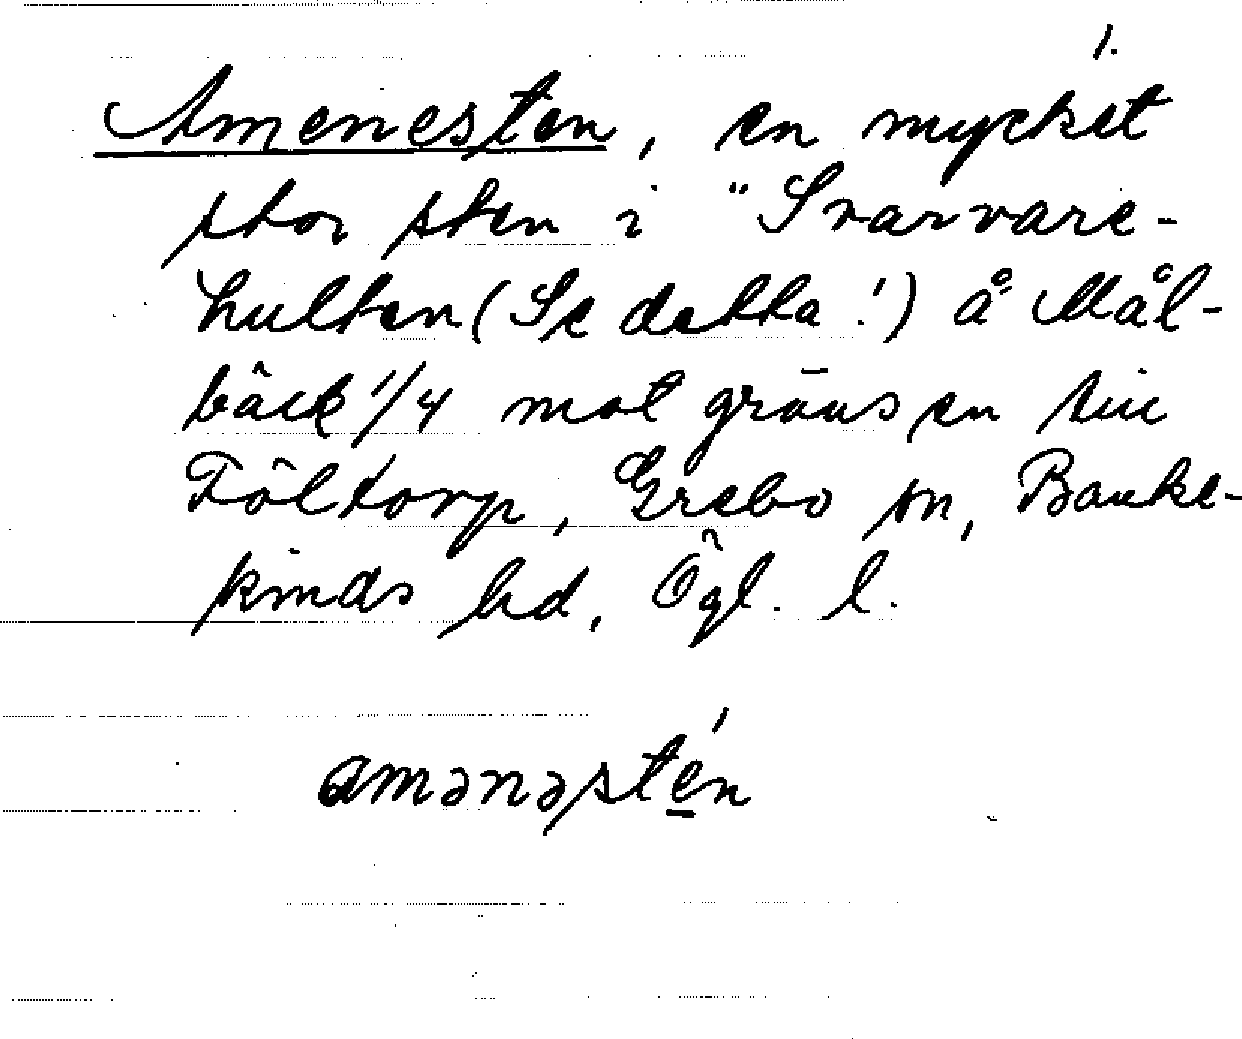 1.
Amenesten, en mycket
stor sten i "Svarvare-
hulten (Se detta!) å Mål-
bäck 1/4 mot gränsen till
Föltorp, Grebo sn, Banke-
kinds hd, Ögl. l.
amənəstén